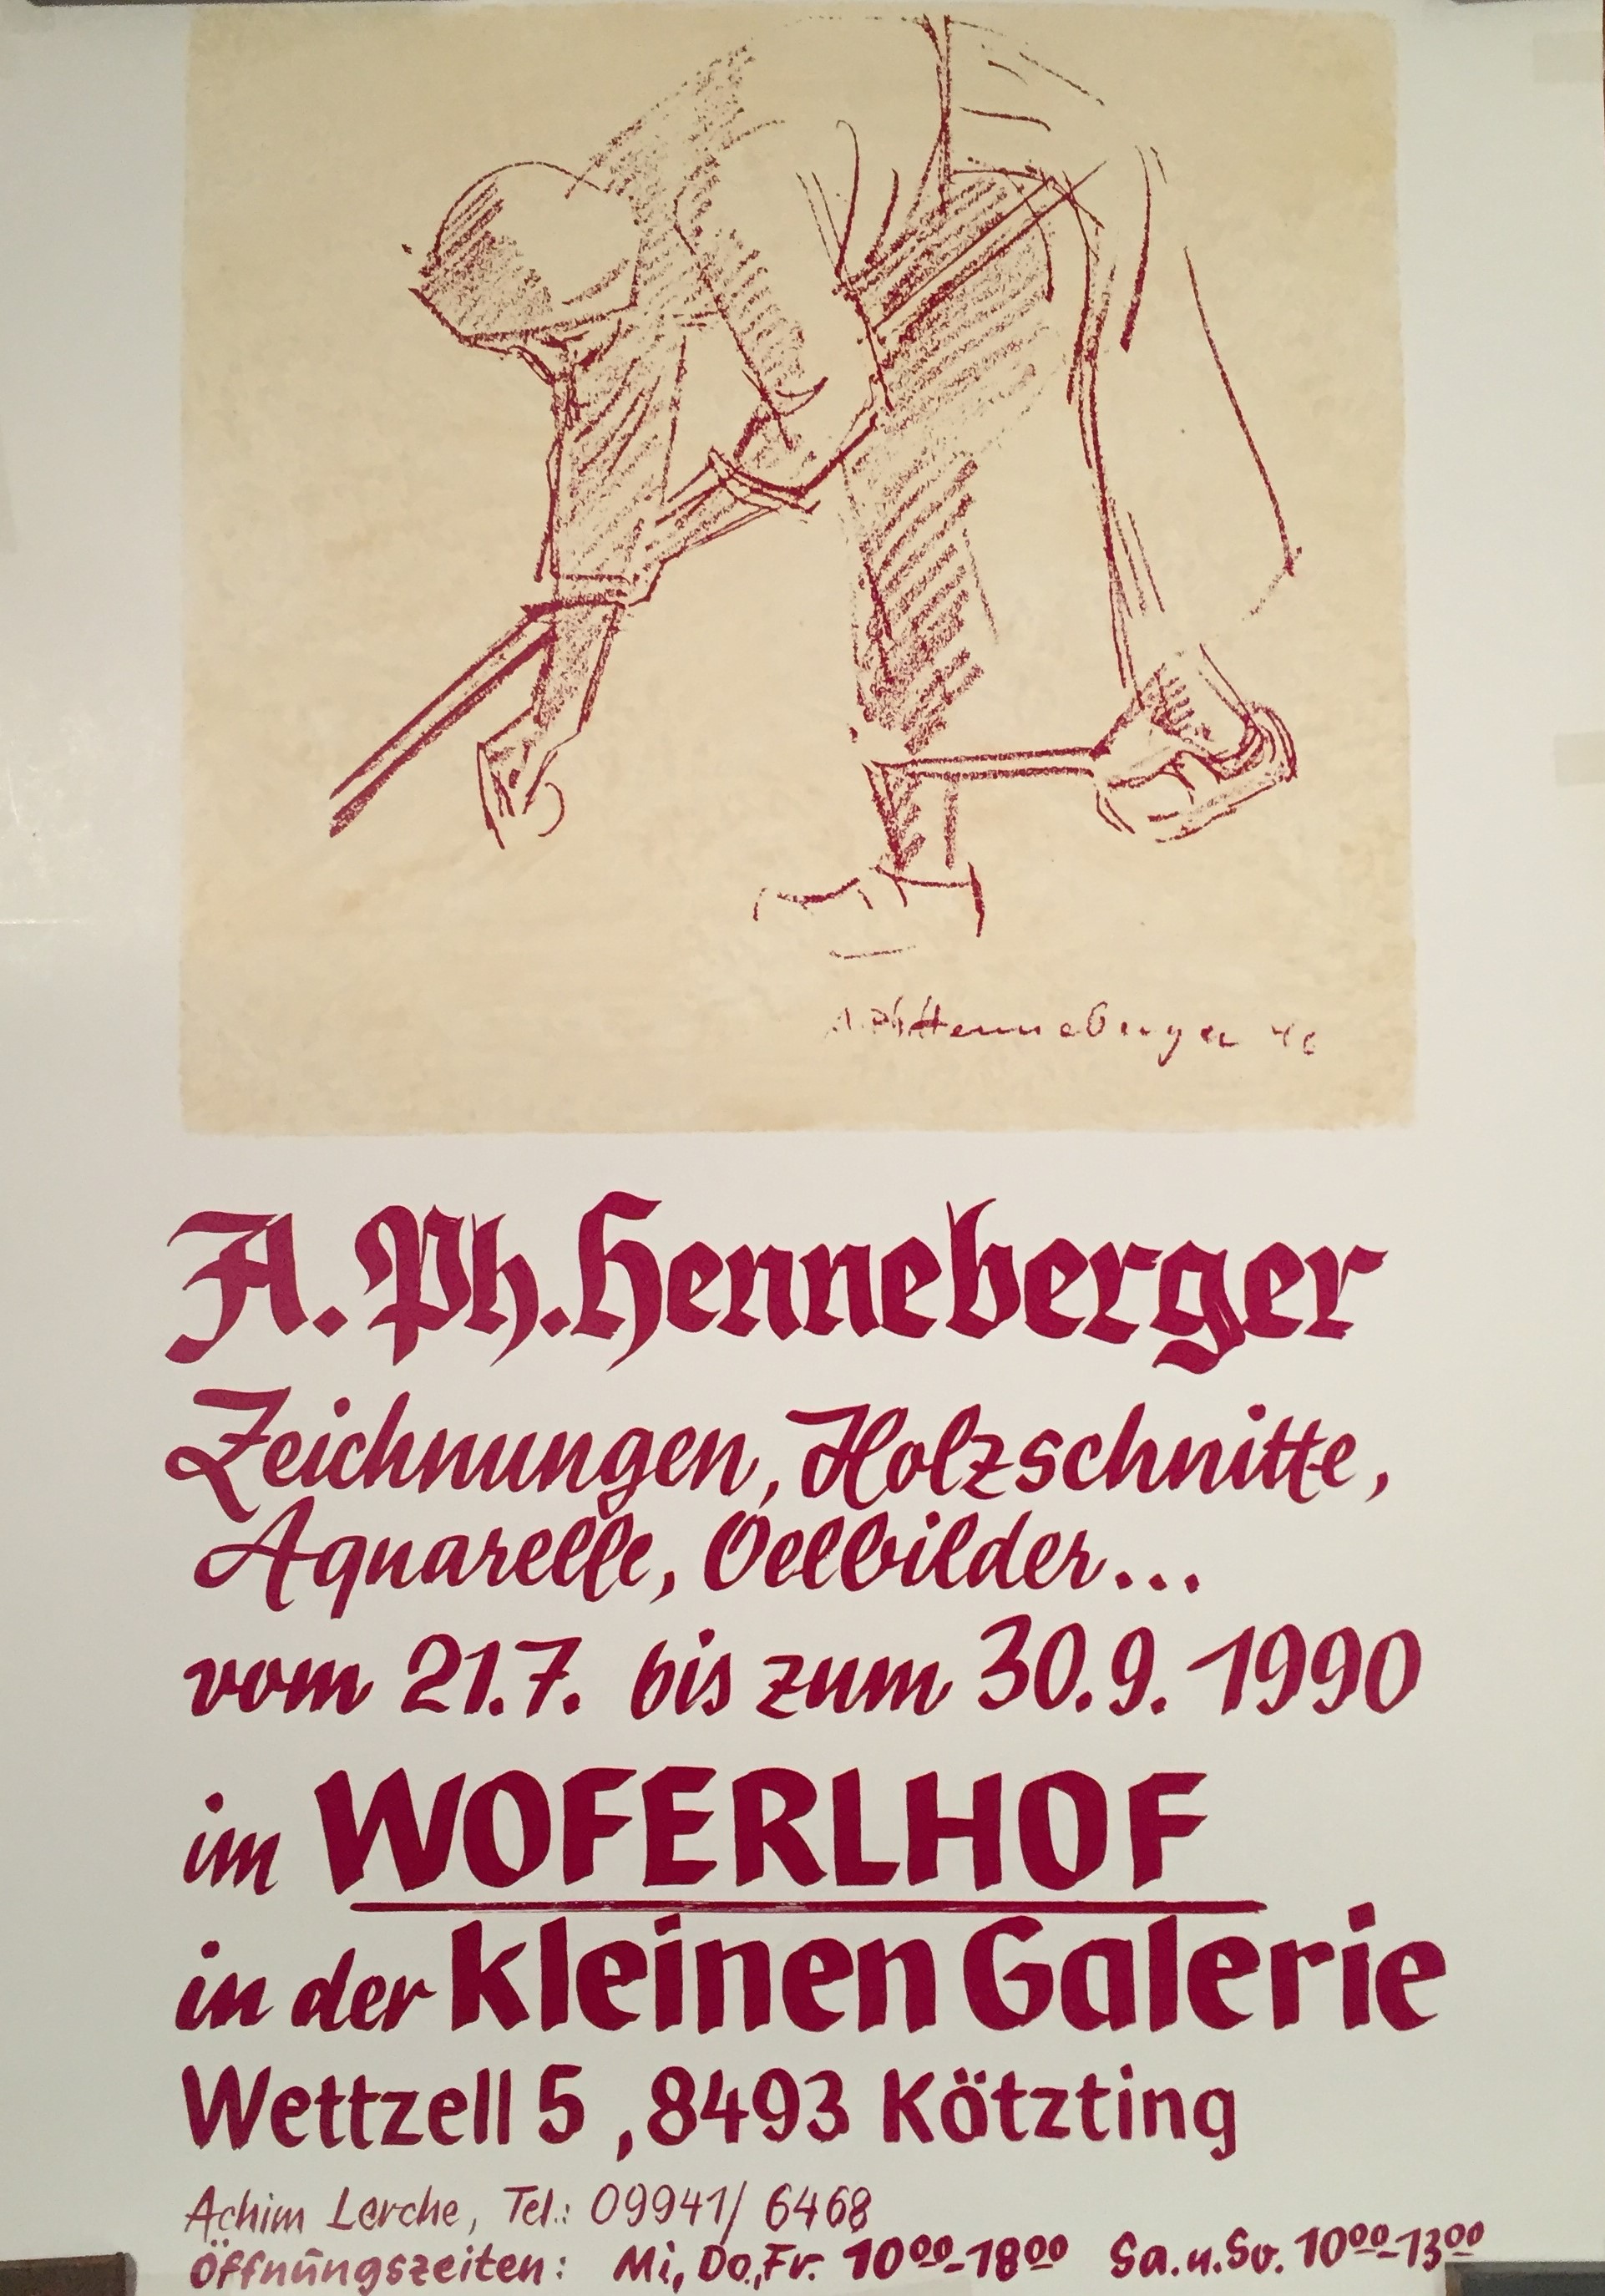 A.Ph.Henneberger 46
A. Ph. Henneberger
Zeichnungen, Holzschnitte,
Aquarelle, Oelbilder...
vom 21.7. bis zum 30.9. 1990
im WOFERLHOF
in der kleinen Galerie
Wettzell 5, 8493 Kötzting
Achim Lerche, Tel.: 09941/ 6468
Öffnungszeiten: Mi, Do., Fr. 10⁰⁰-18⁰⁰ Sa. u. So. 10⁰⁰-13⁰⁰